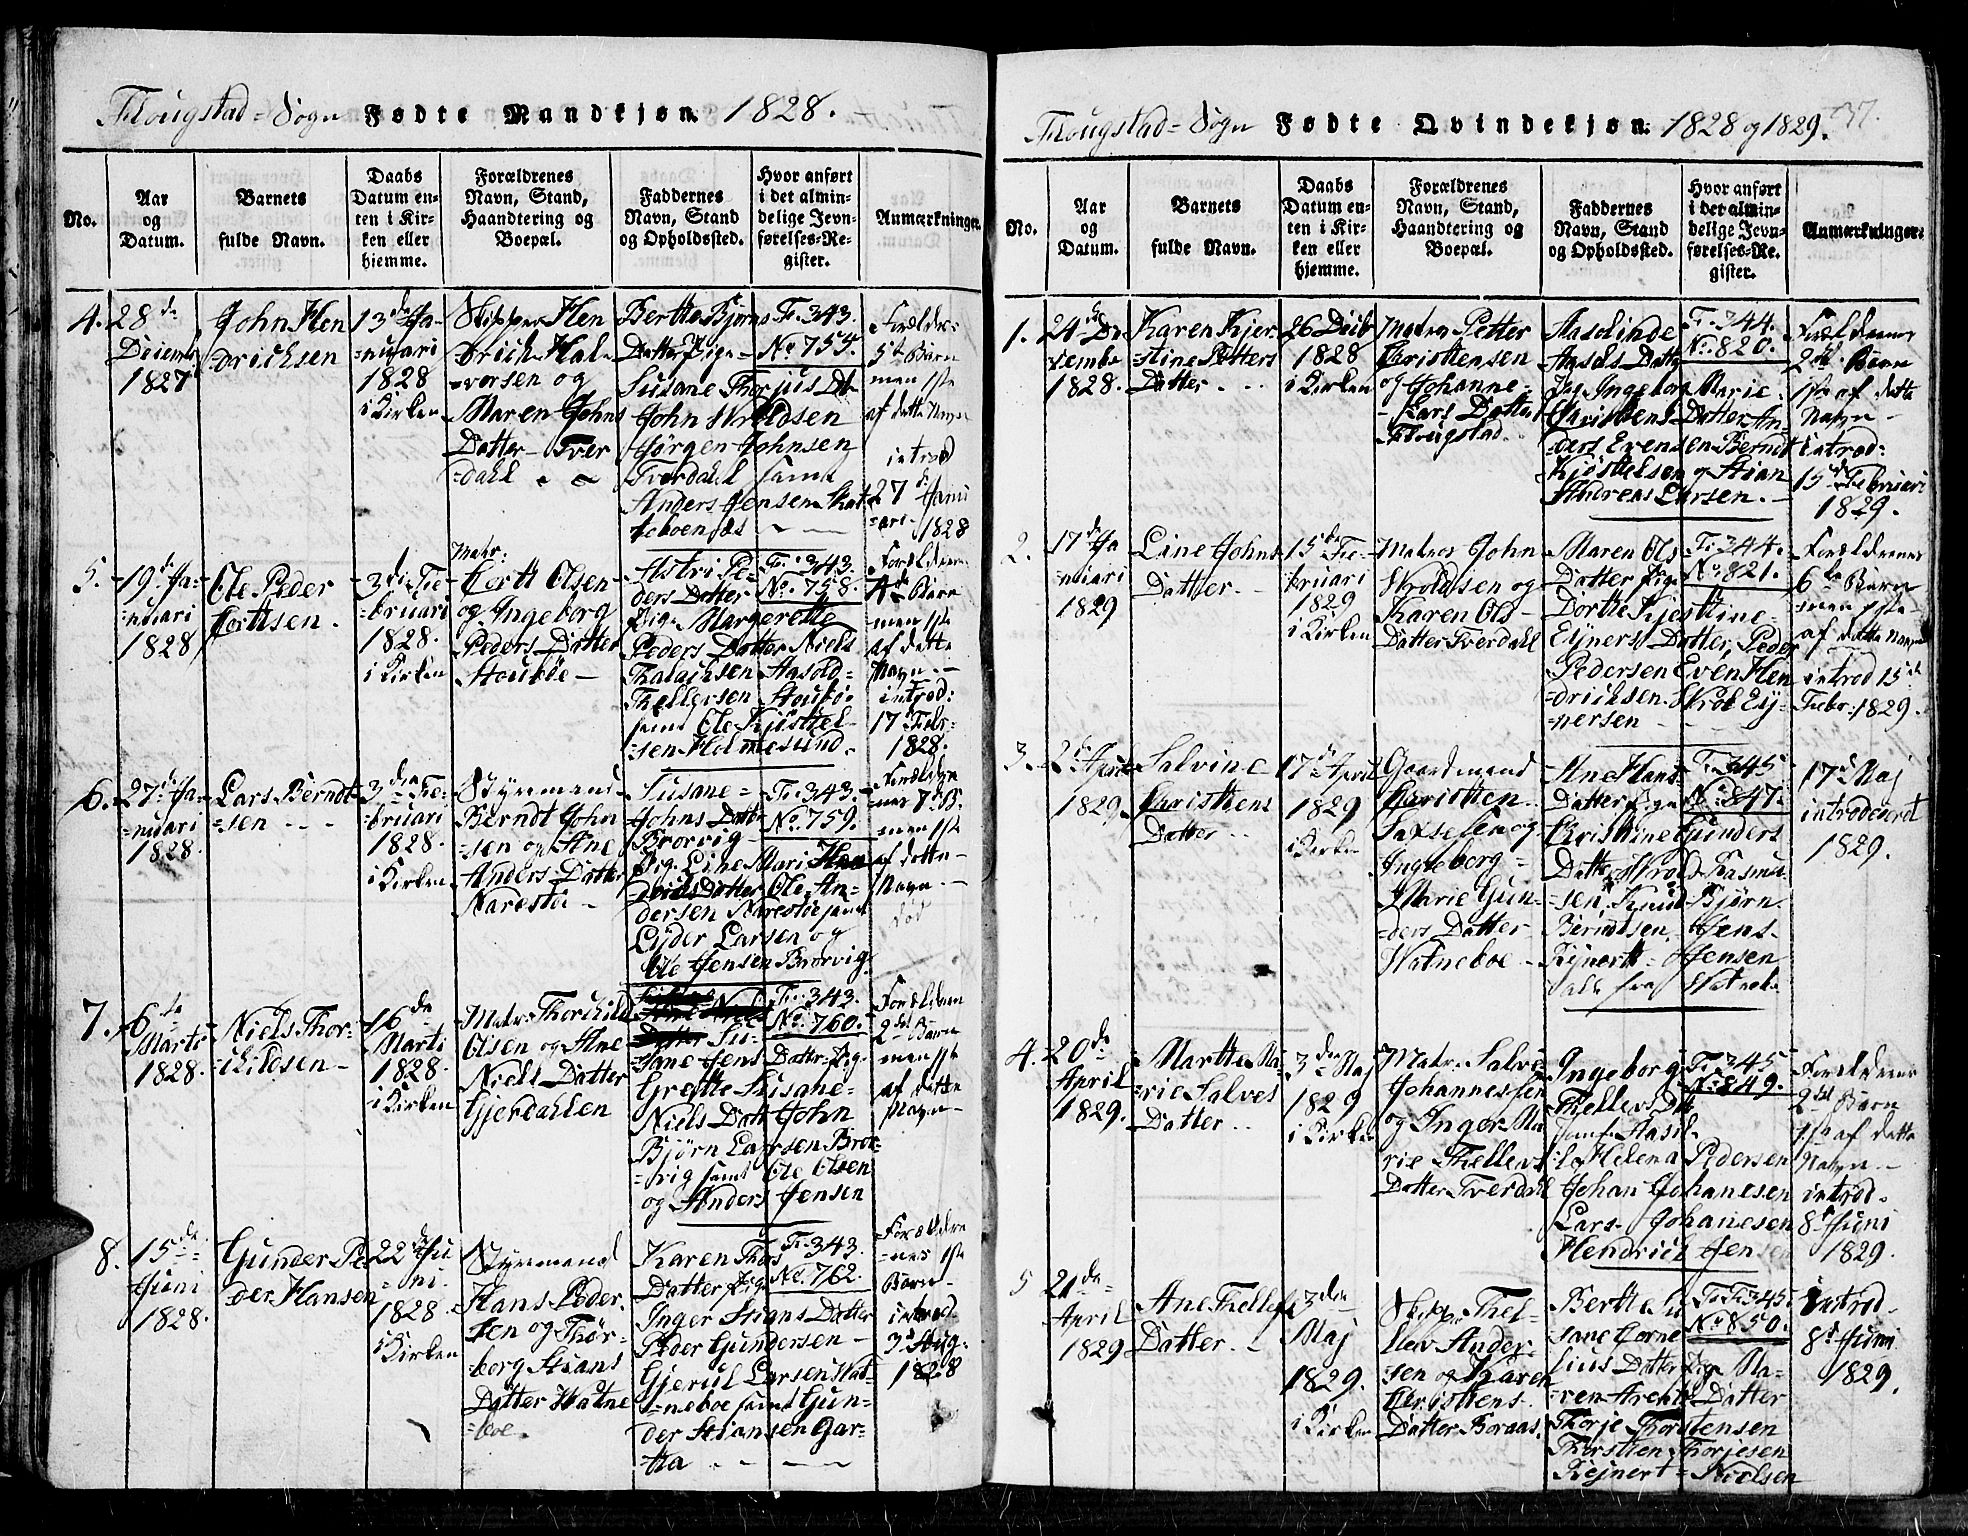 Flougstad=Sogn Fødte Mandkjøn. 1828.
No.
Aar
og
Datum.
Barnets
fulde Navn.
Daabs
Datum en-
ten i Kir-
ken eller
hjemme.
Forældrenes
Navn, Stand,
Haandtering og
Boepæl.
Faddernes
Navn, Stand
og Opholdssted.
Hvor anført
i det almin-
delige Jevn-
førelses-Re-
gister.
Anmærkninger.
4.
28de
Decemb
1827
John Hen
drichsen
13de Ja-
=nuari
1828
i Kirken
Skipper Hen
drich Hal-
=vorsen og
Maren Johns
Datter Tver
=dahl
Berthe Bjørns
Datter Pige
Susane Thorjus Dt
John Wroldsen
Jørgen Johnsen
Tverdahl samt
Anders Jensen
Fr. 343.
No. 757.
Forældre
5te Barn
men 1ste
af dette Navn
introd
27de Janu
=ari
1828
5.
19de Ja-
=nuari
1828
Ole Peder
=sen.
3die Fe-
=bruari
1828.
i Kirken
Matr.
Olsen
og Ingeborg
Peders Datter
Astri Pe-
ders Datter
Pige Margerethe
Peders Datter Niels
Aasold=
Thellefsen
samt Ole Kjøstel-
=sen Holmesund.
Fr. 343.
No. 758.
Forældren
4de Barn
men 1ste
af dette
Navn.
introd:
17de Febr:
1828.
6.
27de Ja-
=nuari
1828.
Lars Berndt
=sen
3die Fe-
=bruari
1828.
i Kirken
Styrmand
Berndt John
=sen og Ane
Anders Datter
Narestøe
Susane=
Johns Datter
Brorvig
Pig. Line Mari Hen
Datter Ole An-
dersen Narestøe samt
Eyder Larsen og
Ole Jensen Brorvig.
Fr. 343.
No. 759.
Forældre
nes 7de B.
men 1ste
af dette
Navn.
død
7.
6te
Marts
1828.
Niels Thor-
=childsen
16de
Marti
1828.
i Kirken
Matr. Thorchild
Olsen og Ane
Niels Datter
Gjerdalen
Su-
sane Jens Datter Pig.
Grethe Susane
Niels Datt John
Bjørn Larsen Bror
=vig samt Ole Olsen
og Anders Jensen
Fr. 343.
No. 760.
Forældren
2det Barn
men 1ste
af dette
Navn
8.
15de
Juni
1828.
Gunder Pe
der Hansen
22de Ju
=ni
1828
i Kirken
Styrmand
Hans Peder
sen og Thør-
berg Stians
Datter Watne
=boe.
Karen Thors
Datter Pig.
Inger Stians Datter
Peder Gundersen
Gjerul Larsen Wat-
=neboe samt Gun-
der Stiansen Gar-
=tta
Fr. 343.
No. 762.
Forældre
=nes 1ste
Barn
introd
3de Aug.
1828
Flougstad=Sogn Fødte Qvindekjøn. 1828 og 1829.
37.
No.
Aar
og
Datum.
Barnets
fulde Navn.
Daabs
Datum en-
ten i Kir-
ken eller
hjemme.
Forældrenes
Navn, Stand,
Haandtering og
Boepæl.
Faddernes
Navn, Stand
og Opholdssted.
Hvor anført
i det almin-
delige Jevn-
førelses-Re-
gister.
Anmærkninger.
1.
24de De
cembe
1828.
Karen Kjer
=stine Petters
Datter
26 Decb
1828
i Kirken
Matros Petter
Christensen
og Johanne
Lars Datter
Flougstad.
Aaselinde
Datter
Ingeborg Marie
Christens Datter An-
ders Evensen Berndt
Kjøstelsen og Stian
Andreas Larsen.
Fr. 344.
No. 820.
Forældrenes
2det Barn
1ste af dette
Navn
introd:
15de Februari
1829.
2.
17de Ja
=nuari
1829
Line Johns
Datter
15de Fe-
bruari
1829
i Kirken
Matros John
Wroldsen og
Karen Ols
Datter Tverdahl
Maren Ols
Datter Pige
Dorthe Kjestine
Ejners Datter, Peder
Pedersen Even Hen
=drichsen Wrol Ej-
=nersen
Fr. 344.
No. 821.
Forældrenes
6te Barn
men 1ste
af dette Navn
introd 15de
Febr: 1829.
3.
2de April
1829.
Salvine
Christens
Datter
17de April
1829
i Kirken
Gaardmand
Christen
Saxesen og
Ingeborg=
Marie Gun-
=ders Datter
Watneboe
Ane Hans
Datter Pige
Christine Gunders
Datter Wrol Rasmu
sen, Knud Bjørn
Berndtsen, Jens
Rejnert Jensen
alle fra Watneb.
Fr. 345
No. 847.
17de Maj
introduceret
1829.
4.
20de
April
1829.
Marthe Ma-
=rie Salves
Datter
3die Maj
1829
i Kirken
Matr. Salve
Johannessen
og Inger Ma
rie Thellevs
Datter Tverdahl
Ingeborg
Thellevs Dtt
samt Aase
Helena Pedersen
Johan Johanesen
Lars Johanesen
Hendrich Jensen
Fr. 345
No. 849.
Forældrenes
2det Barn
1ste af dette
Navn
introd.
8de Juni
1829.
5
21de
April
1829
Ane Thellefs
Datter
3die
Maj
1829.
i Kirken
Skip. Thel-
lev Ander-
sen og Karen
Christens
Datter Boraas.
Berthe Su
sane Corne
lius Datter Pige Ma-
=ren Arents Datter
Thorje Thorstensen
Thorsten Thorjesen
Rejnert Nielsen
Fr. 345.
No 850.
introd
8de Juni
1829.